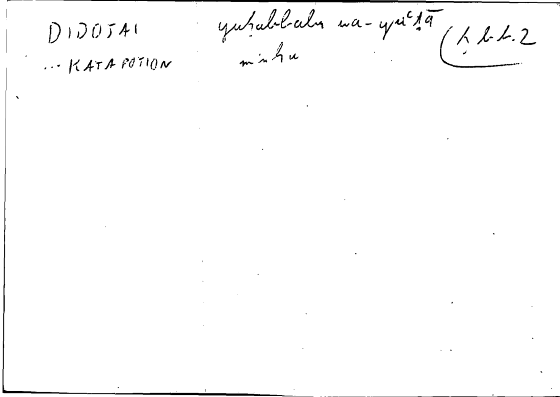 DIDOTAI yuḥabbabu wa-yuʿṭā (ḥ.b.b.2
... KATAPOTION minhu